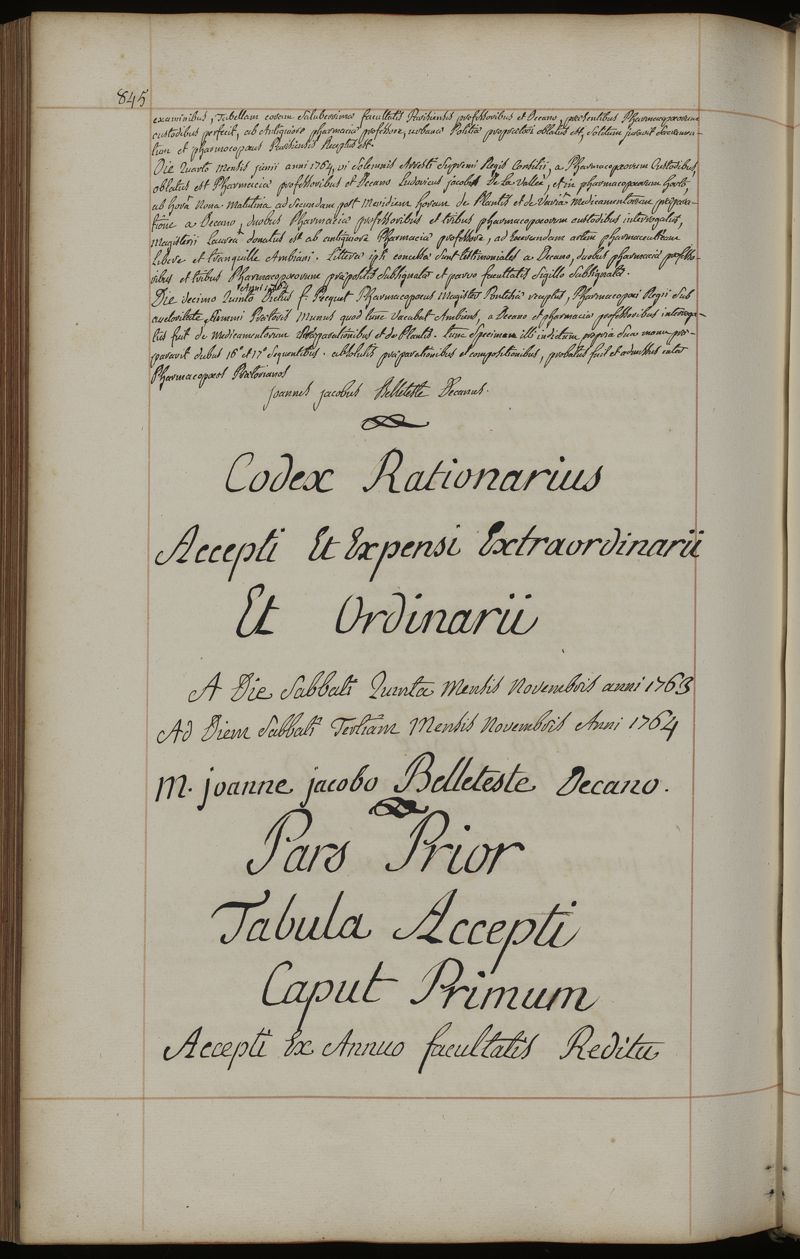 845
examinibus, Tabellam eosdem Saluberrimæ facultatis Parisiensis professoribus et Decano, præsentibus Pharmacopœorum
custodibus perfecit, ab Antiquiore pharmaciæ professore, urbanæ Politiæ proprætori oblatus est, solitum juravit Sacramen-
tum et pharmacopœus Parisiensis Receptus est.
Die Quarto Mensis junii anni 1764, vi Solemnis Arresti Supremi Regis Consilii, a Pharmacopœorum Custodibus,
oblatus est Pharmaciæ professoribus et Decano Ludovicus jacobus De La Vallée, et in pharmacopœorum horto,
ab horâ Nona Matutina ad Secundam post Meridiem horam de Plantis et de variâ Medicamentorum præpara-
tione a Decano, duobus Pharmaciæ professoribus et tribus pharmacopœorum custodibus interrogatus,
Magisterii Laureâ donatus est ab antiquiore Pharmaciæ professore, ad exercendam artem pharmaceuticam
Libere et tranquille Ambiani. Litteræ ipsi concessæ Sunt testimoniales a Decano, duobus pharmaciæ professo-
ribus et tribus Pharmacopœorum præpositis Subsignatæ et parvo facultatis Sigillo Subsignatæ.
Anni 1764
Die Decimo Quinto Dictus f. Pecquet Pharmacopœus Magister Pontesiæ receptus, Pharmacopœi Regii Sub
auctoritate Summi Prætoris Munus quod tunc Vacabat Ambiens, a Decano et pharmaciæ professoribus interroga-
tus fuit de Medicamentorum Præparationibus et de Plantis. Tunc Specimen illi indictum propria Sua manu præ-
paravit diebus 16 et 17 Sequentibus. absolutis præparationibus et compositionibus, probatus fuit et admissus inter
Pharmacopœos Prætorianos
joannes jacobus Belleteste Decanus.
Codex Rationarius
Accepti Et Expensi Extraordinarii
Et Ordinarii
A Die Sabbati Quinta Mensis Novembris anni 1763
Ad Diem Sabbati Tertiam Mensis Novembris Anni 1764
M. joanne jacobo Belleteste Decano.
Pars Prior
Tabula Accepti
Caput Primum
Accepti Ex Annuo facultatis Reditu